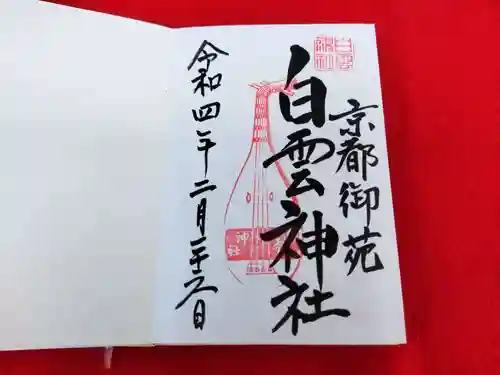 京都御苑
白雲神社
令和四年二月二十六日